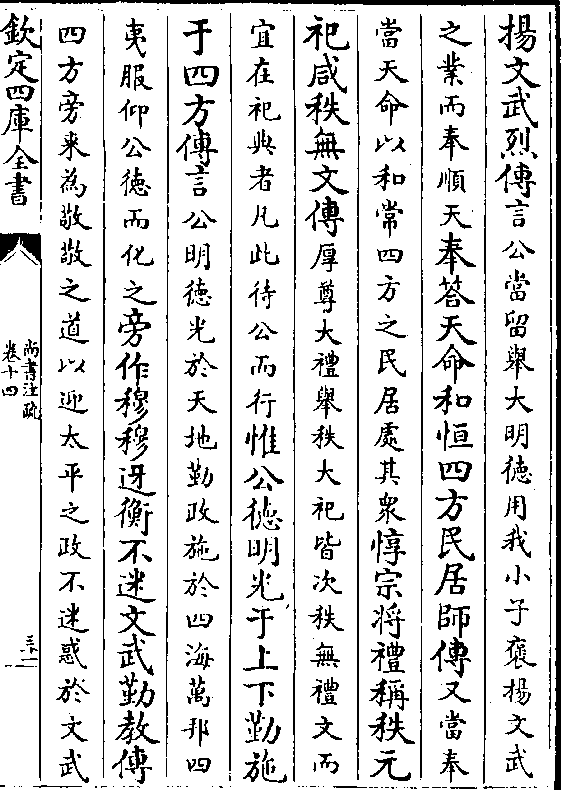 揚文武烈傳言公當留舉大明德用我小子褒揚文武
之業而奉順天奉答天命和恒四方民居師傳又當奉
當天命以和常四方之民居處其衆惇宗將禮稱秩元
祀咸秩無文傳厚尊大禮舉秩大祀皆次秩無禮文而
宜在祀典者凡此待公而行惟公德明光于上下勤施
于四方傳言公明德光於天地勤政施於四海萬邦四
夷服仰公德而化之旁作穆穆迓衡不迷文武勤教傳
四方旁来為敬敬之道以迎太平之政不迷惑於文武
欽定四庫全書
尚書注疏
卷十四